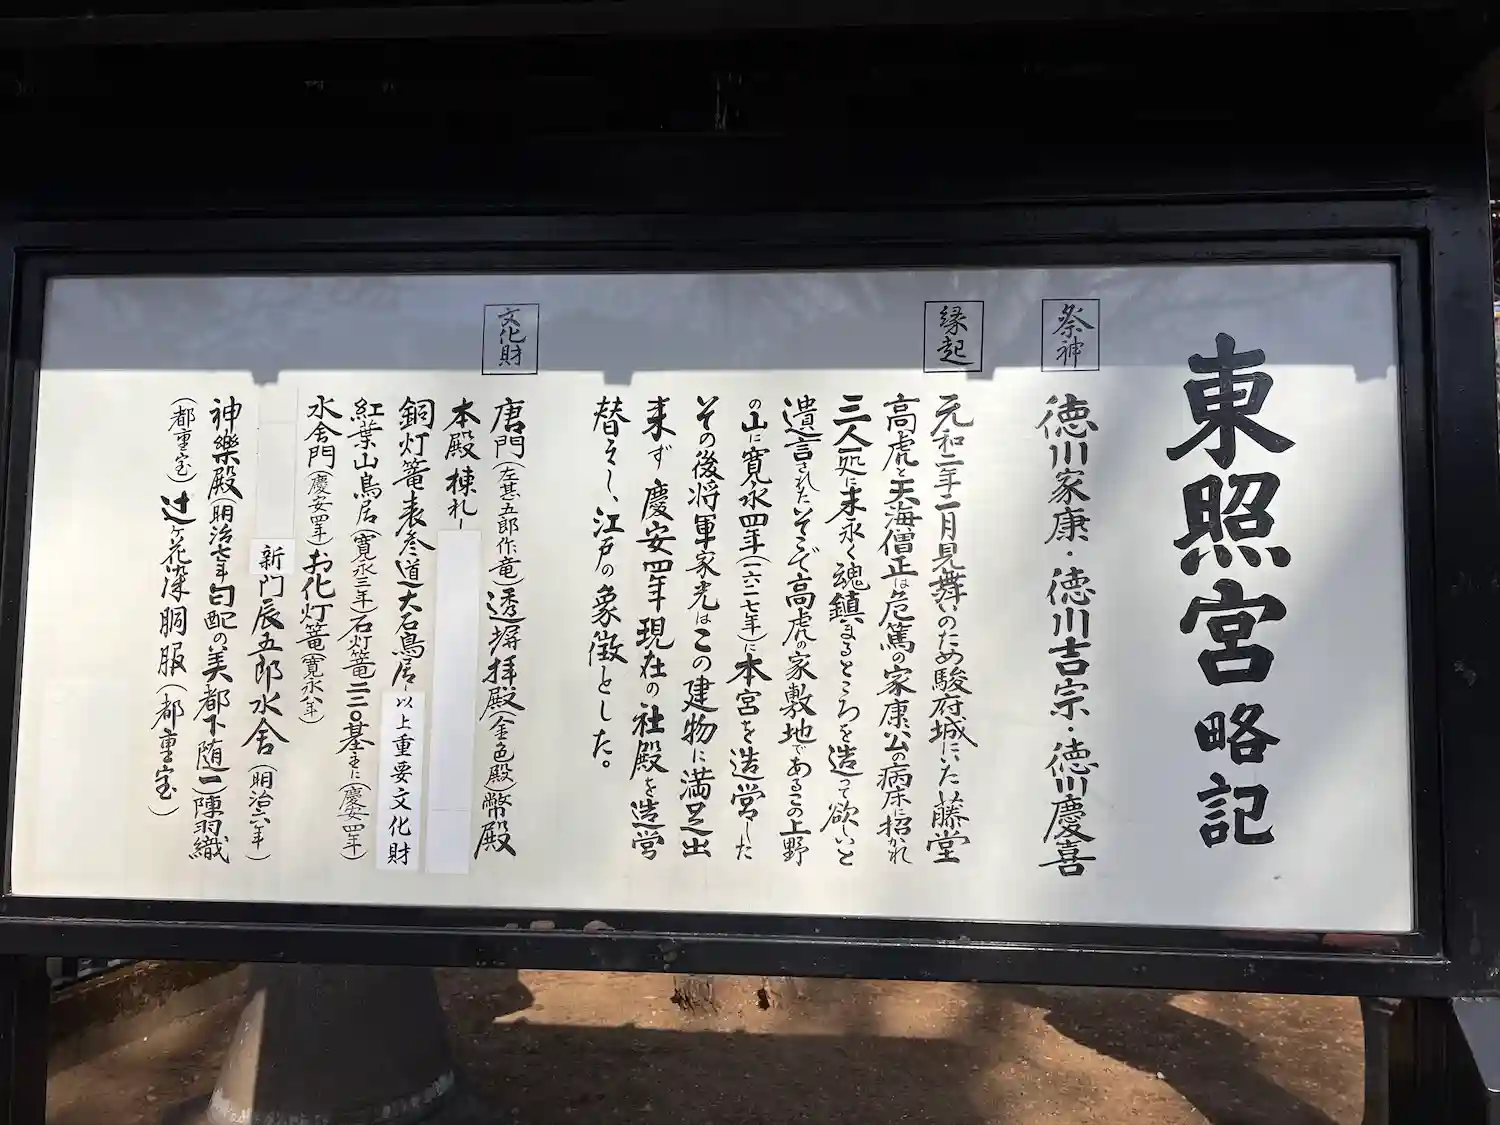 東照宮略記
祭神
徳川家康・徳川吉宗・徳川慶喜
縁起
元和二年二月見舞いのため駿府城にいた藤堂
高虎と天海僧正は危篤の家康公の病床に招かれ
三人一処に末永く魂鎮まるところを造って欲しいと
遺言されたそこで高虎の家敷地であるこの上野
の山に寛永四年(一六二七年)に本宮を造営した
その後将軍家光はこの建物に満足出
来ず慶安四年現在の社殿を造営
替えし、江戸の象徴とした。
文化財
唐門(左甚五郎作竜)透塀拝殿(金色殿)幣殿
本殿棟札
銅灯篭表参道大石鳥居 以上重要文化財
紅葉山鳥居(寛永三年)石灯篭二二〇基(慶安四年)
水舎門(慶安四年)お化灯篭(寛永八年)
新門辰五郎水舎(明治六年)
神樂殿(明治七年)勾配の美都下随一)陣羽織
(都重宝)辻ヶ花染胴服(都重宝)